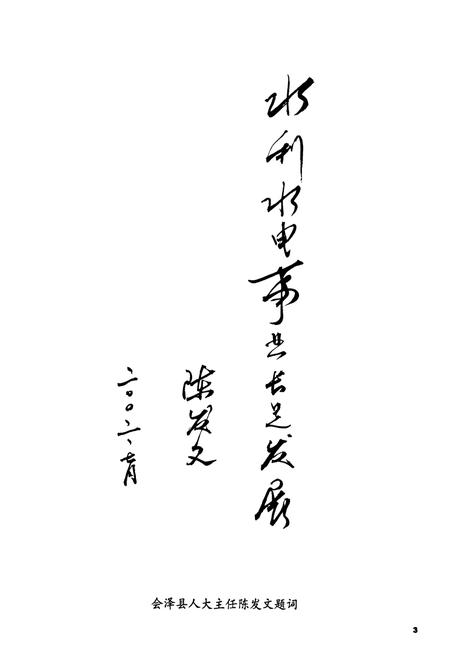 水利水电事业长足发展
陈发文
二〇〇六、七月
会泽县人大主任陈发文题词
3